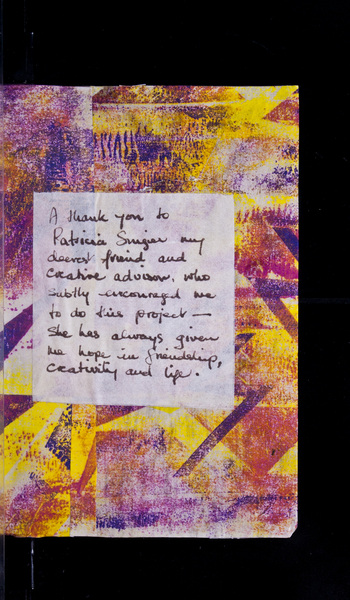 A thank you to
Patricia Singer my
dearest friend and
creative advisor, who
subtly encouraged me
to do this project —
She has always given
me hope in friendship,
creativity and life.